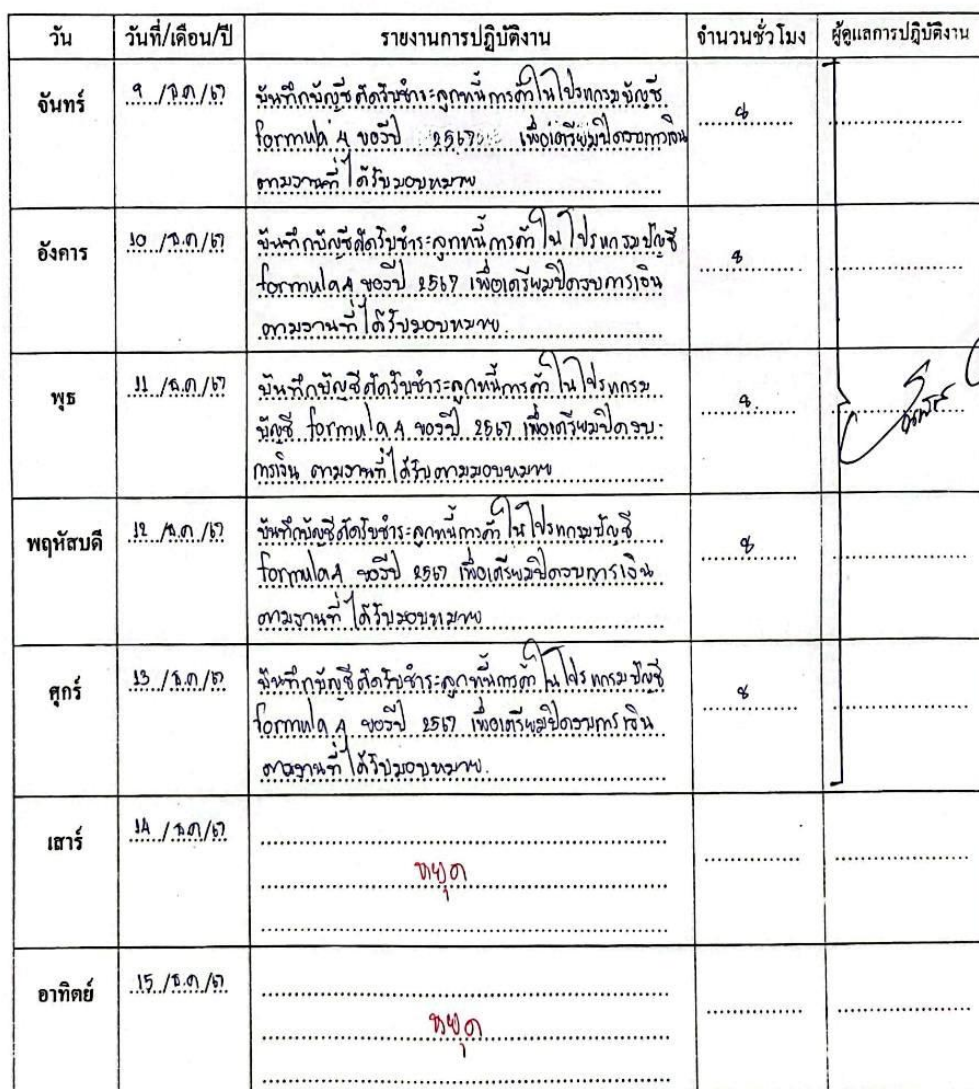 วัน วันที่/เดือน/ปี รายงานการปฏิบัติงาน จำนวนชั่วโมง ผู้ดูแลการปฏิบัติงาน
จันทร์ 9 /ธ.ค/67 บันทึกบัญชีตัดรับชำระลูกหนี้การค้าในโปรแกรมบัญชี
formula 4 ของปี 2567 เพื่อเตรียมปิดงบการเงิน 8
ตามงานที่ได้รับมอบหมาย
อังคาร 10 /ธ.ค/67 บันทึกบัญชีตัดรับชำระลูกหนี้การค้าในโปรแกรมบัญชี
formula 4 ของปี 2567 เพื่อเตรียมปิดงบการเงิน 8
ตามงานที่ได้รับมอบหมาย.
พุธ 11 /ธ.ค/67 บันทึกบัญชีตัดรับชำระลูกหนี้การค้าในโปรแกรม
บัญชี formula 4 ของปี 2567 เพื่อเตรียมปิดงบ 8
การเงิน ตามงานที่ได้รับตามมอบหมาย
พฤหัสบดี 12 /ธ.ค/67 บันทึกบัญชีตัดรับชำระลูกหนี้การค้าในโปรแกรมบัญชี
formula 4 ของปี 2567 เพื่อเตรียมปิดงบการเงิน 8
ตามงานที่ได้รับมอบหมาย
ศุกร์ 13 /ธ.ค/67 บันทึกบัญชีตัดรับชำระลูกหนี้การค้าในโปรแกรมบัญชี
formula 4 ของปี 2567 เพื่อเตรียมปิดงบการเงิน 8
ตามงานที่ได้รับมอบหมาย.
เสาร์ 14 /ธ.ค/67
หยุด
อาทิตย์ 15 /ธ.ค/67
หยุด